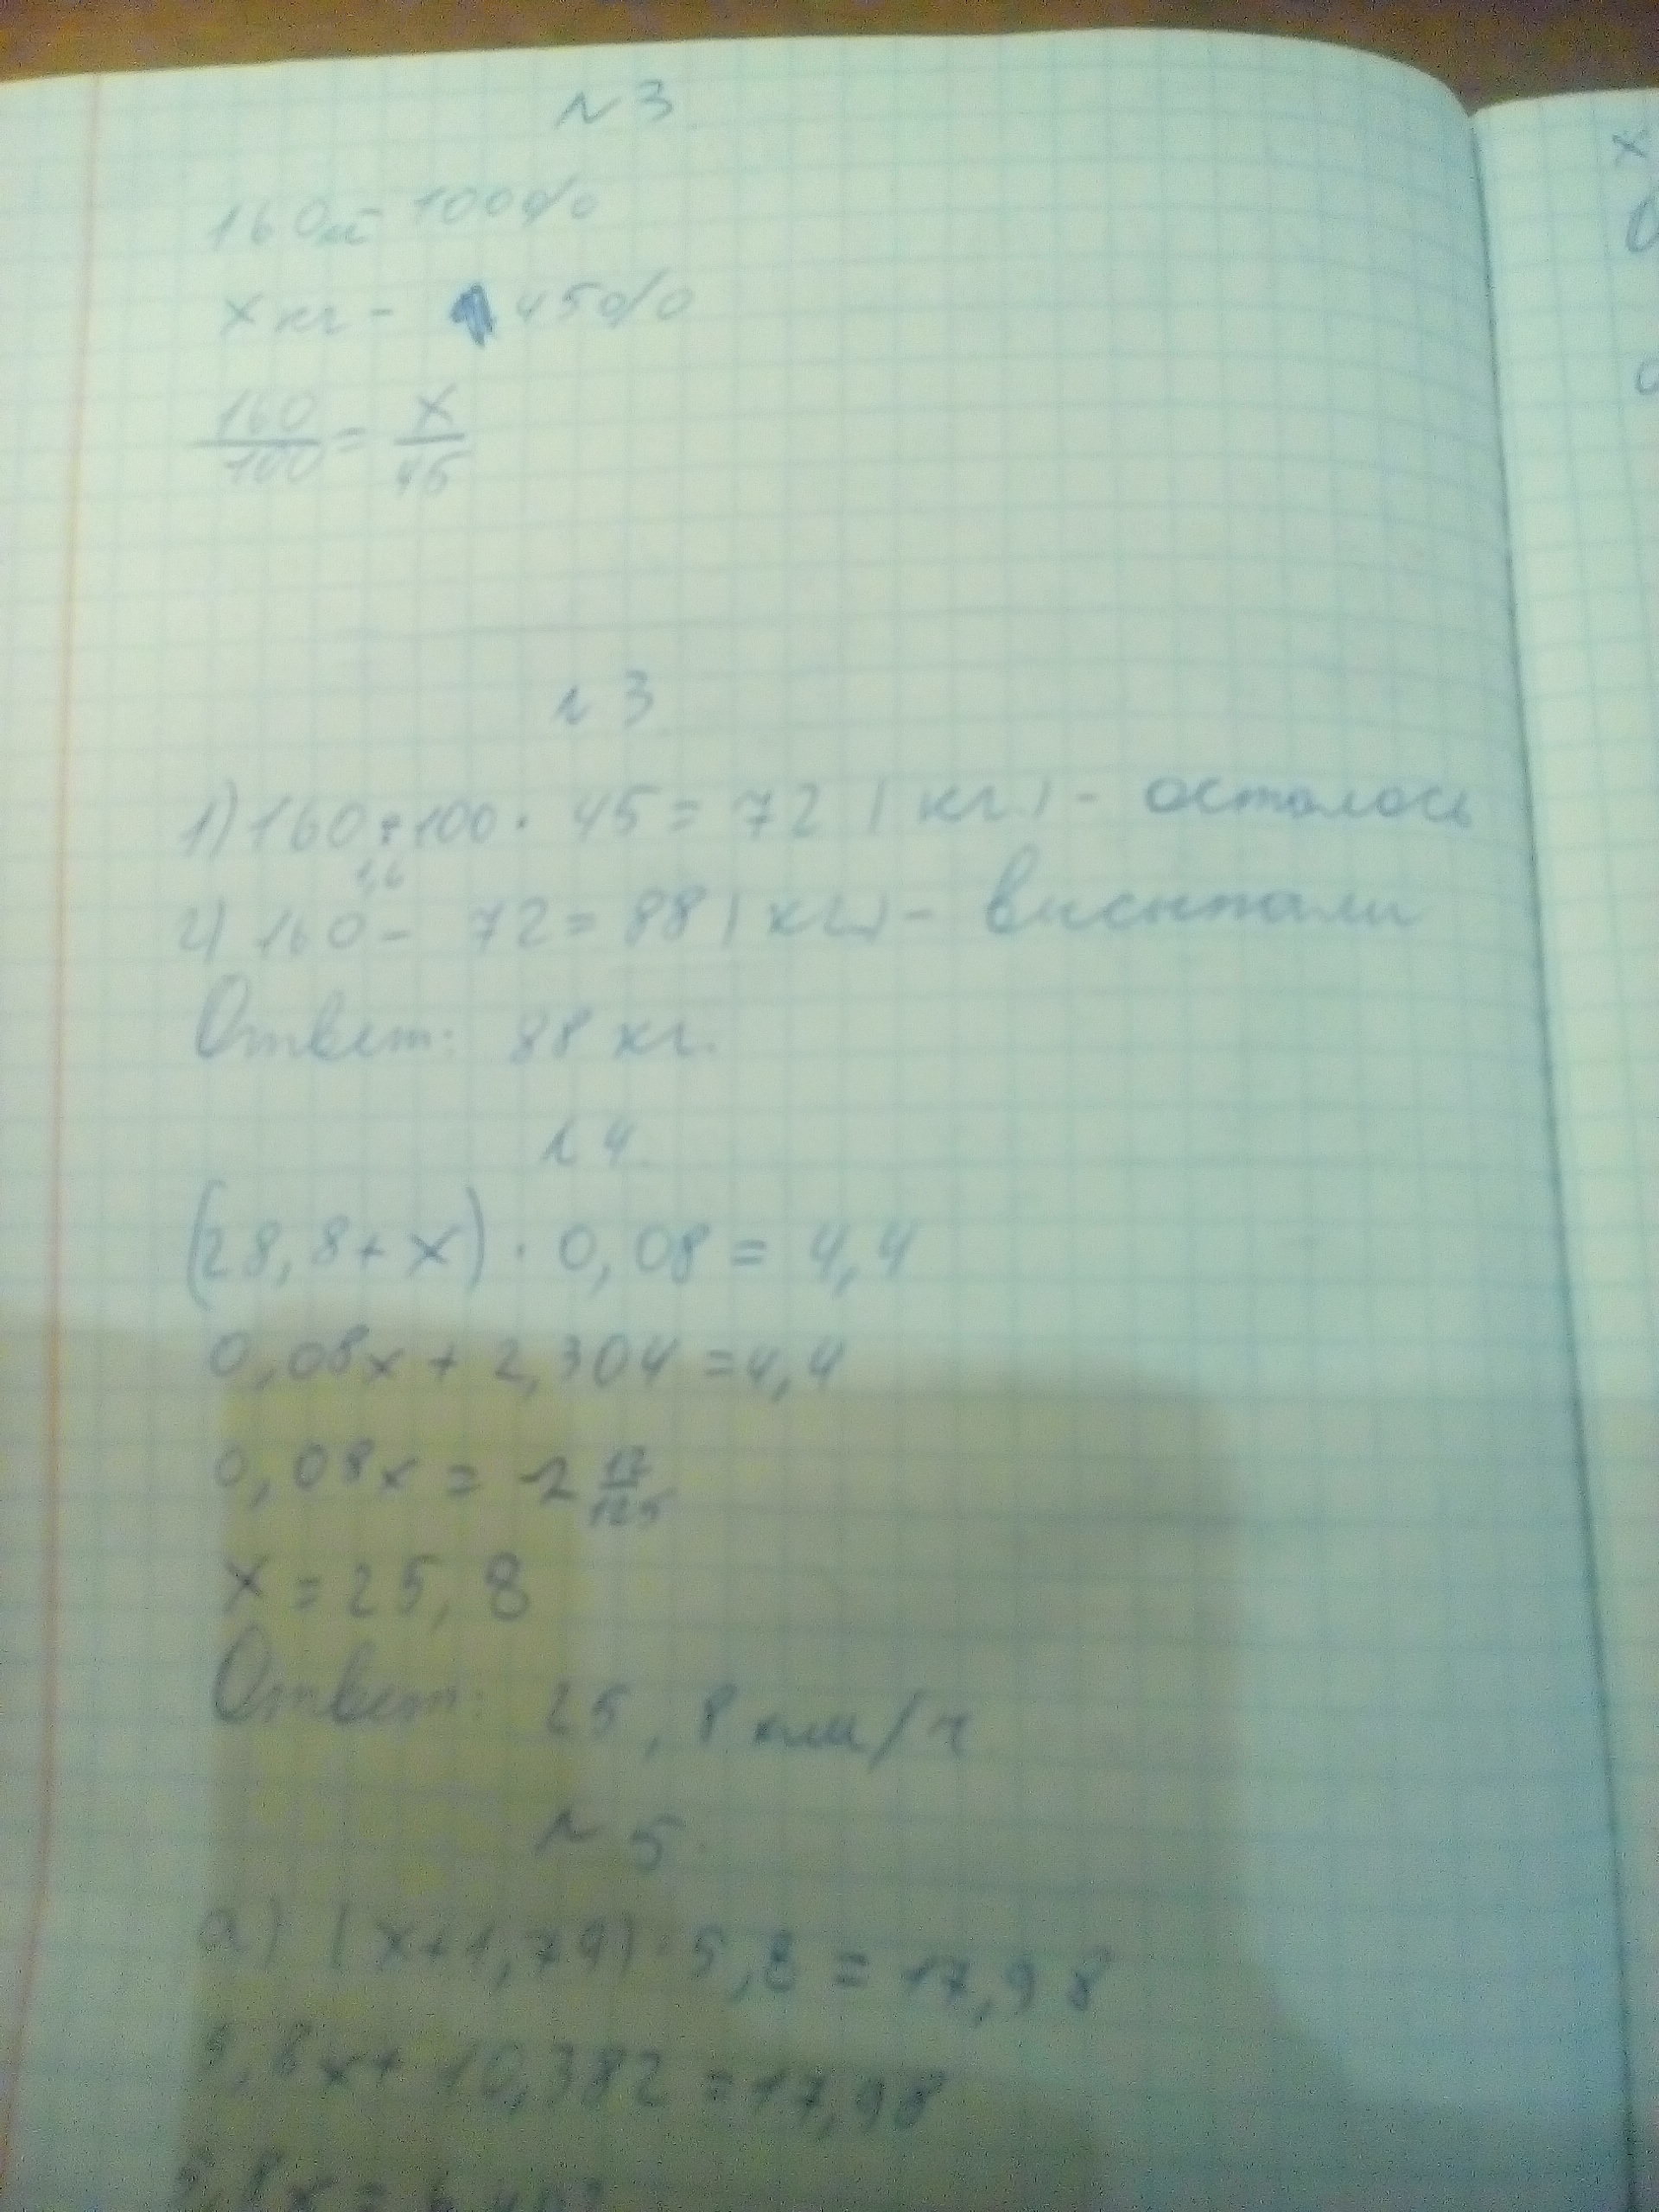 №3
160 кг - 100%
х кг - 45%
160/100 = х/45
№3
1) 160 : 100 · 45 = 72 (кг) - осталось
1,6
2) 160 - 72 = 88 (кг) -
Ответ: 88 кг.
№4
(28,8 + х) · 0,08 = 4,4
0,08х + 2,304 = 4,4
0,08х = 2 12/125
х = 25,8
Ответ: 25,8 км/ч
№5.
а) (х+1,79) · 5,8 = 17,98
5,8х + 10,382 = 17,98
5,8х =